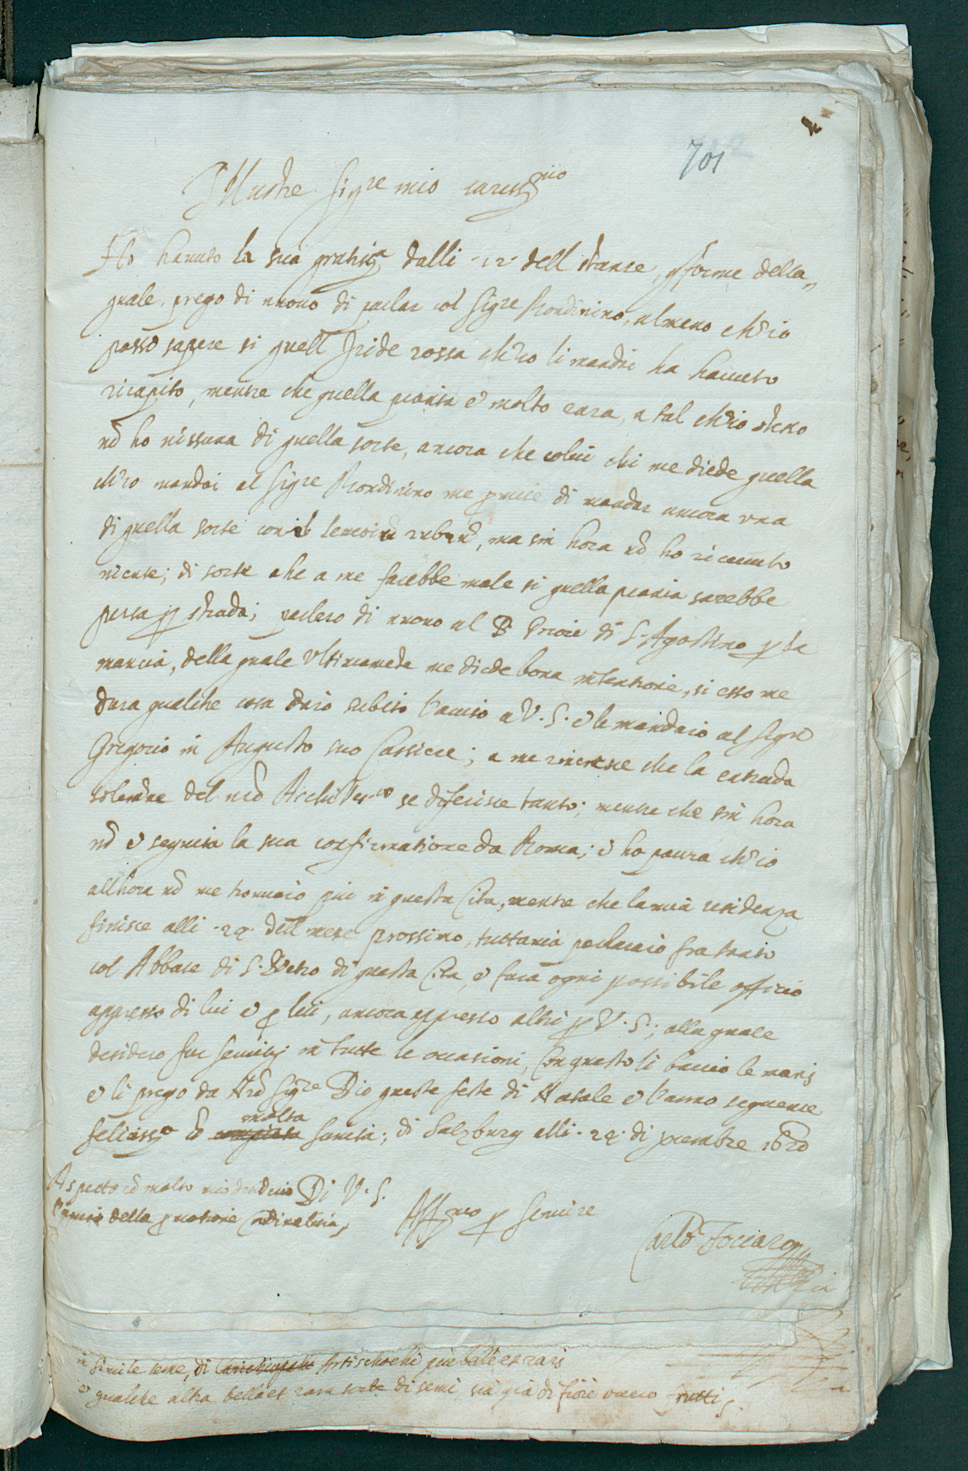 701
Illustre Sig.re mio cariss.mo
Ho hauuto la sua gratis.ma dalli 12 dell stante, conforme della
quale, prego di nuouo di parlar col Sig.re Rondinino, almeno ch'io
posso sapere si quell Iride rossa ch'io li mandai ha hauuto
ricapito, mentre che quella pianta è molto cara, a tal ch'io stesso
nō ho nissuna di quella sorte, ancora che colui chi me diede quella
ch'io mandai al Sig.re Rondinino me promise di mandar ancora una
di quella sorte con il, ma sin hora nō ho riceuuto
niente; di sorte che a me sarebbe male si quella pianta sarebbe
persa per strada; parlaro di nuouo al P. Prior di S. Agostino per la
marcia, della quale ultimamente me diede bona intentione, si esso me
dara qualche cosa daro subito l'auiso a V. S. e le mandaro al Sig.re
Gregorio in Augusta suo Cassiere; a me rincresce che la entrada
solenne del nrō Archi se diferisce tanto; mentre che sin hora
nō è seguita la sua confirmatione da Roma; e ho paura ch'io
allhora nō me trouaro qui in questa Cita, mentre che la mia residenza
finisce alli 24 dell mese prossimo, tuttauia parlaro fra tanto
col Abbate di S. Pietro di questa Cita, e fara ogni possibile officio
appresso di lui e per lui, ancora appresso altri per V. S.; alla quale
desidero far seruitij in tutte le occasioni, Con questo li baccio le manj
e li prego da Nrō Sig.re Dio queste feste di Natale e l'anno seguente
feliciss.o cō molta sanita; di Salzburg alli 24 di Xcembre 1620
Aspetto cō molto mio desiderio Di V. S.
l'auiso della
Aff.mo per seruire
Carlo
simile seme, di Artischochi piu belli et rari
e qualche altra bella et rara sorte di semi, sia già di fiori ouero frutti